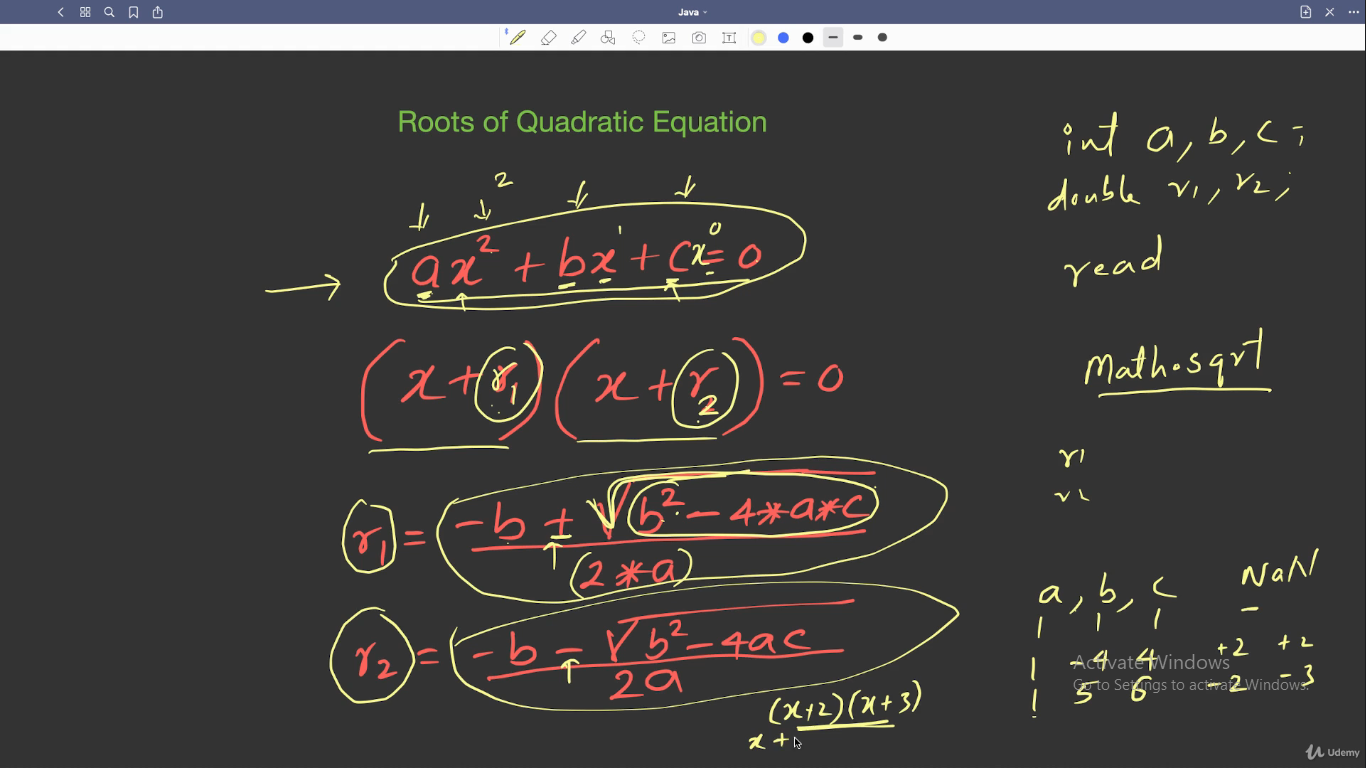 Java
Roots of Quadratic Equation
2
ax² + bx¹ + cx⁰ = 0
(x + r₁) (x + r₂) = 0
r₁ = -b ± √b² - 4*a*c
(2*a)
r₂ = -b - √b² - 4ac
2a
(x+2)(x+3)
x +
int a, b, c;
double r1, r2;
read
Math.sqrt
r1
r2
a, b, c NaN
1 1 1 -
1 -4 4 +2 +2
1 5 6 -2 -3
Activate Windows
Go to Settings to activate Windows.
Udemy